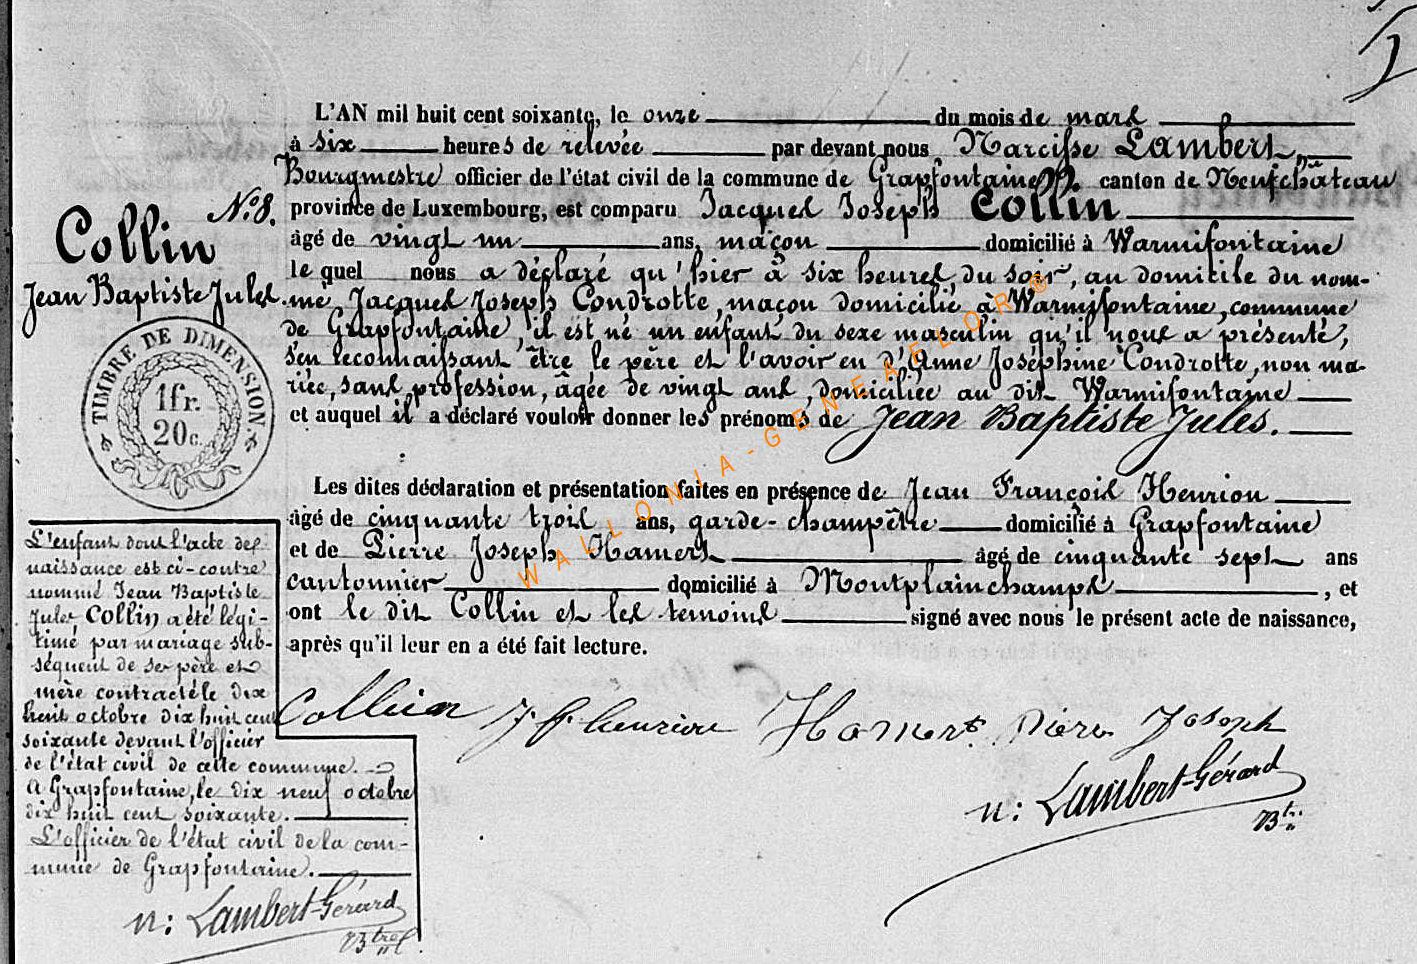 L'AN mil huit cent soixante, le onze du mois de mars
à six heures de relevée par devant nous Narcisse Lambert,
Bourgmestre officier de l'état civil de la commune de Grapfontaine, canton de Neufchâteau
province de Luxembourg, est comparu Jacques Joseph Collin
âgé de vingt un ans, maçon domicilié à Warmifontaine
le quel nous a déclaré qu'hier à six heures du soir, au domicile du nom-
mé Jacques Joseph Condrotte, maçon domicilié à Warmifontaine, commune
de Grapfontaine, il est né un enfant du sexe masculin qu'il nous a présenté,
s'en reconnaissant être le père et l'avoir eu d'Anne Joséphine Condrotte, non ma-
riée, sans profession, âgée de vingt ans, domiciliée au dit Warmifontaine
et auquel il a déclaré vouloir donner les prénoms de Jean Baptiste Jules.
Les dites déclaration et présentation faites en présence de Jean François Henrion
âgé de cinquante trois ans, garde-champêtre domicilié à Grapfontaine
et de Pierre Joseph Hamert âgé de cinquante sept ans
cantonnier domicilié à Montplainchamps, et
ont le dit Collin et les temoins signé avec nous le présent acte de naissance,
après qu'il leur en a été fait lecture.
Collin J. f. henrion Hamert piere Joseph
n: Lambert-Gérard
Btre
N° 8.
Collin
Jean Baptiste Jules
TIMBRE DE DIMENSION.
1fr.
20c.
L'enfant dont l'acte de
naissance est ci-contre
nommé Jean Baptiste
Jules Collin a été légi-
timé par mariage sub-
séquent de ses père et
mère contracté le dix
huit octobre dix huit cent
soixante devant l'officier
de l'état civil de cette commune.
A Grapfontaine, le dix neuf octobre
dix huit cent soixante.
L'officier de l'état civil de la com-
mune de Grapfontaine.
n: Lambert-Gérard
Btre
WALLONIA-GENEALOR®